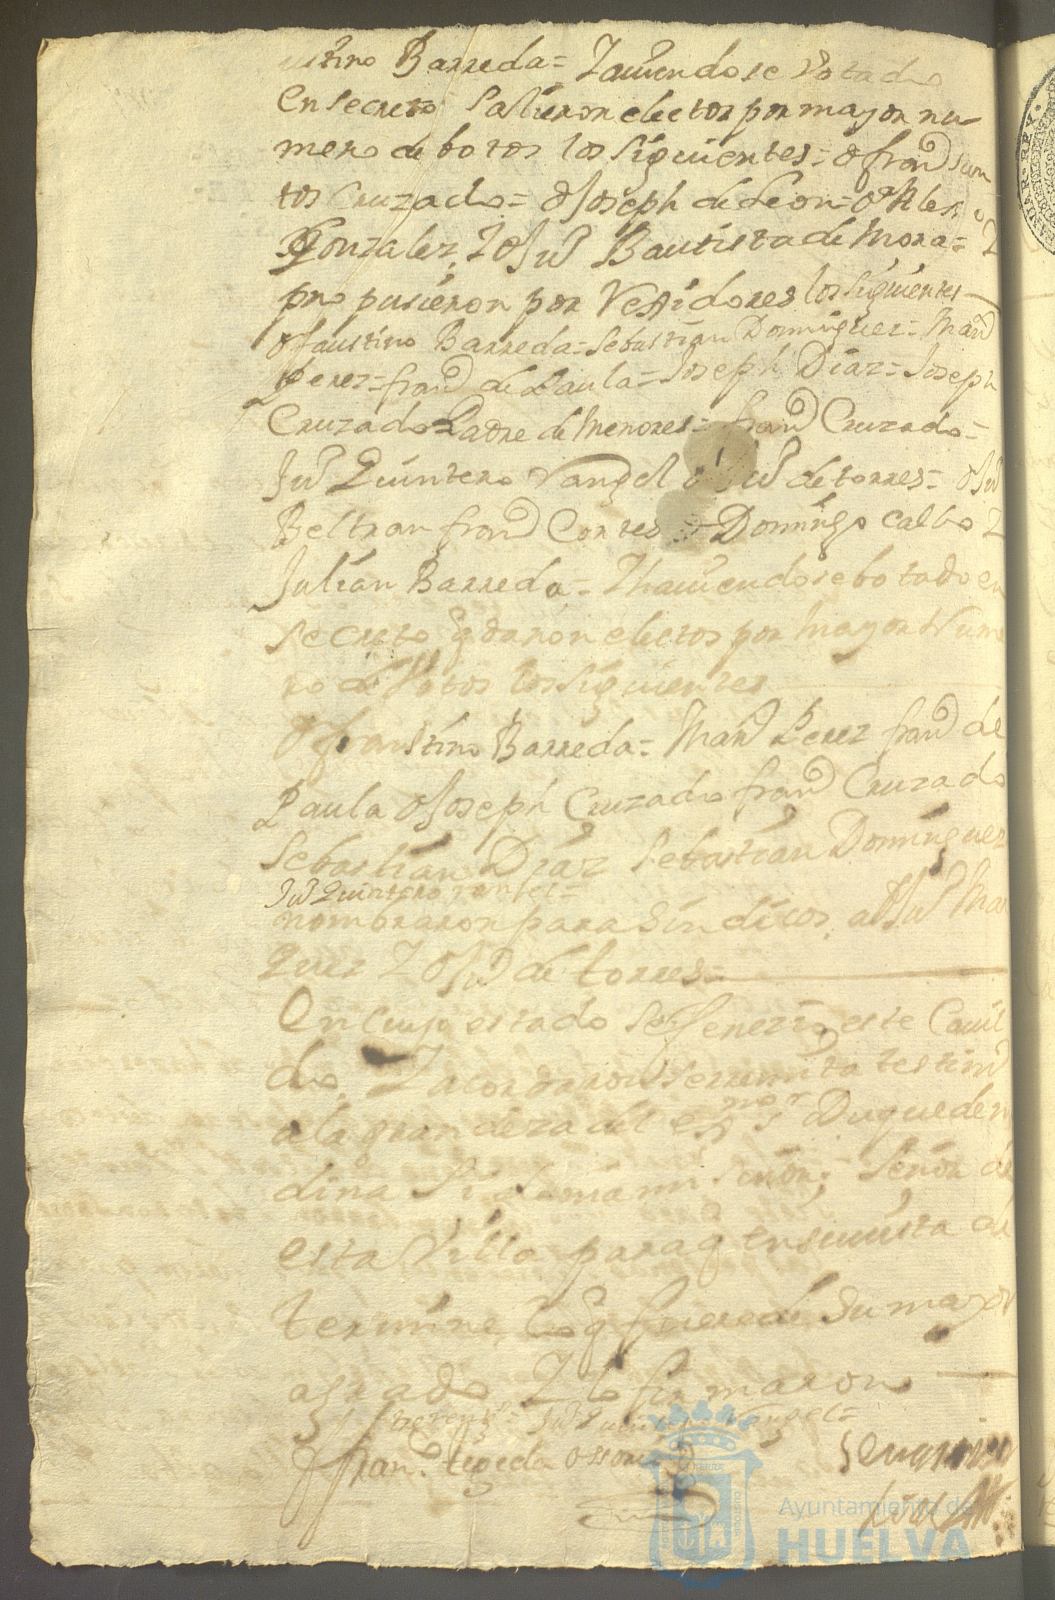 stino Barreda = Y aviendose Votado
en secreto Salieron electos por mayor nu-
mero de botos los siguientes = Dn franco
tos Cruzado = Dn Joseph de Leon = Dn Ales
Gonzalez, Y Dn Jun Bautista de Mora = Y
pro pusieron por Rexidores los siguientes
Dn faustino Barreda = Sebastian Dominguez = Manl
Perez = franco de Paula = Joseph Diaz = Joseph
Cruzado Padre de Menores = franco Cruzado =
Jun Quintero Vangel Dn Jun de torres = Dn Jun
Beltran franco Cortes = Domingo Calbo Y
Julian Barreda = Y haviendose botado en
secreto qdaron electos por mayor Nume
ro de Votos los siguientes
Dn faustino Barreda = Manl Perez franco de
Paula Dn Joseph Cruzado franco Cruzado
Sebastian Diaz Sebastian Dominguez
Jun Quintero Vangel =
nombraron para Sindicos, a Dn Jun Mar
quez Y Dn Jun de torres =
En cuyo estado se fenezio este Cavil
do, Y acordaron se remita testimo
a la grandeza del Exmo Sr Duque de me
dina Sidonia mi señor, Señor de
esta Villa para q en su vista de
termine lo q fuere de su mayor
agrado Y lo firmaron
Jun Quintero Vangel =
Dn Fran. tegeda ossorio
Ayuntamiento de
HUELVA